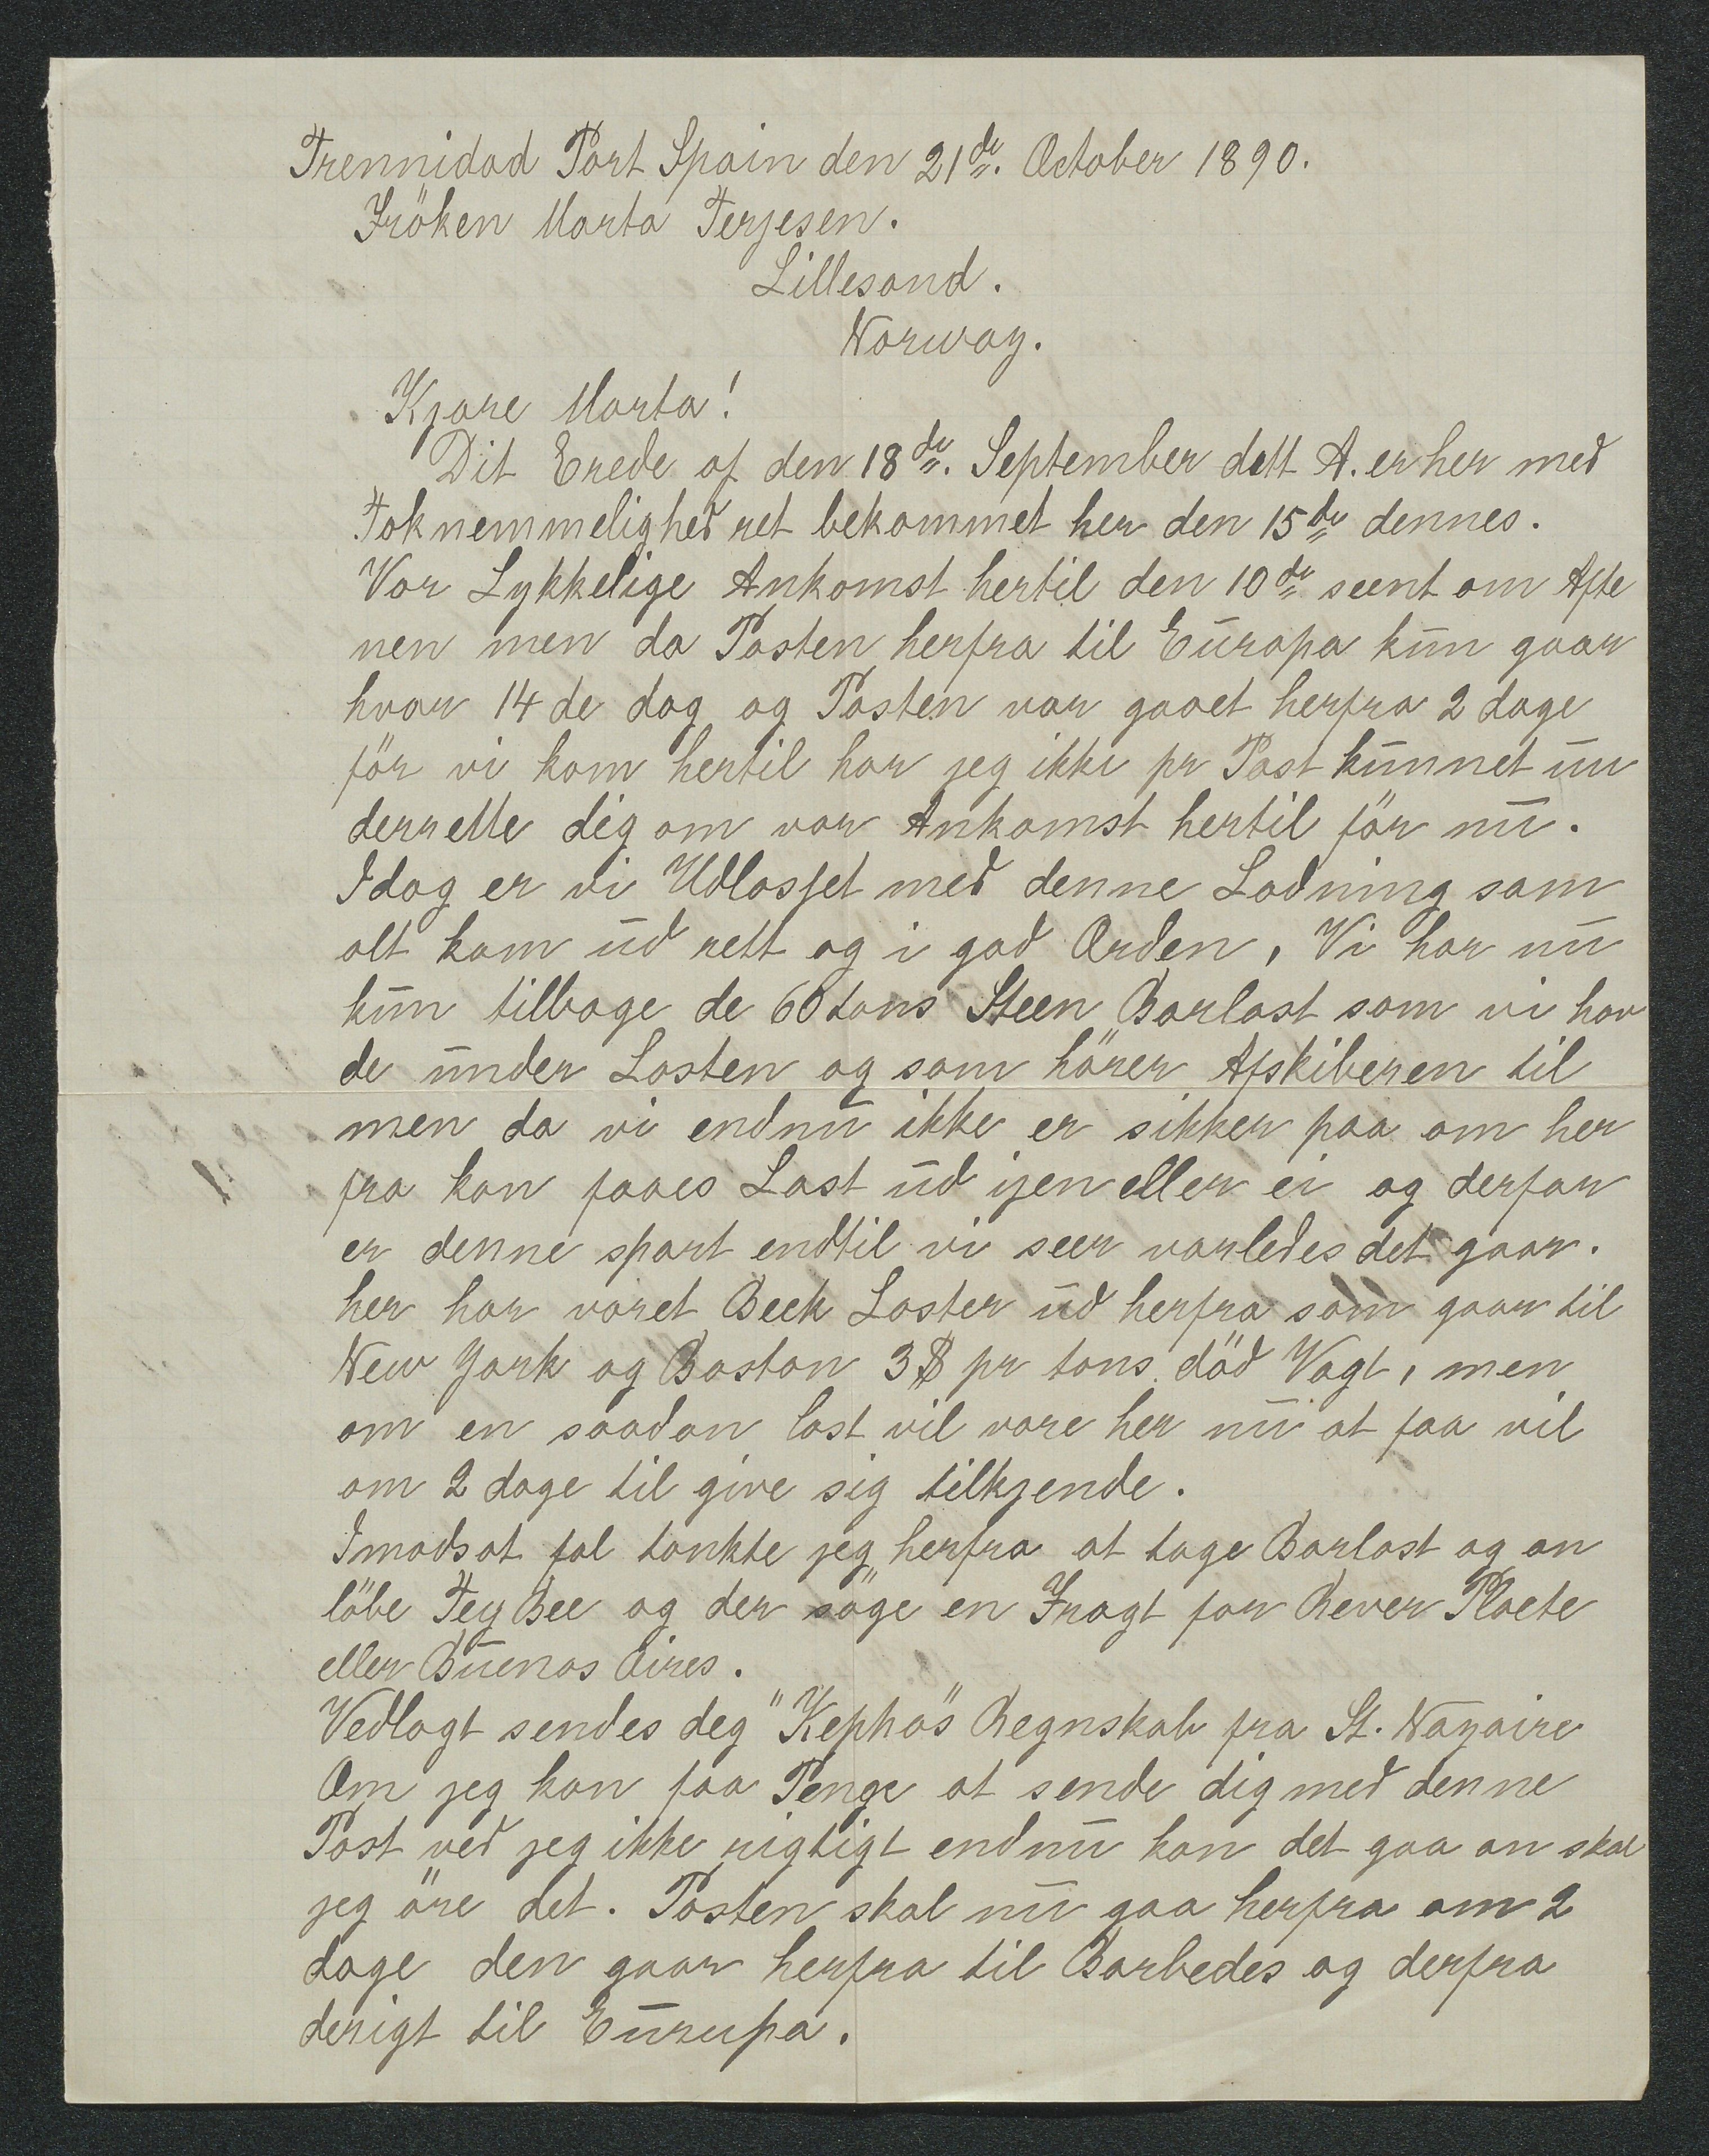 Trennidad Port Spain den 21de. October 1890.
Fröken Marta Terjesen.
Lillesand.
Norway.
Kjare Marta!
Dit Erede af den 18de. September dett A. er her med
Taknemmelighed ret bekommet her den 15de dennes.
Vor Lykkelige Ankomst hertil den 10de seent om Afte
nen men da Posten herfra til Europa kun gaar
hvar 14 de dag og Posten var gaaet herfra 2 dage
för vi kom hertil har jeg ikke pr Post kunnet un
derrette dig om vor Ankomst hertil för nu.
Idag er vi Udlosset med denne Ladning som
alt kom ud rett og i god Orden, Vi har nu
kun tilbage de 60 tons Steen Barlast som vi hav
de under Lasten og som hörer Afskiberen til
men da vi endnu ikke er sikker paa om her
fra kan faaes Last ud igen eller ei og derfor
er denne spart endtil vi seer varledes det gaar.
her har varet Beek Laster ud herfra som gaar til
New York og Boston 3$ pr tons död Vagt, men
om en saadan last vil vare her nu at faa vil
om 2 dage til give sig tilkjende.
Imodsat fal tankte jeg herfra at tage Barlast og an
löbe Tey Bee og der söge en Fragt for Rever Plaete
eller Buenos Aires.
Vedlagt sendes deg "Kephas" Regnskab fra St. Nazaire
Om jeg kan faa Penge at sende dig med denne
Post ved jeg ikke rigtigt endnu kan det gaa an skal
jeg öre det. Posten skal nu gaa herfra om 2
dage den gaar herfra til Barbedes og derfra
derigt til Eurupa.